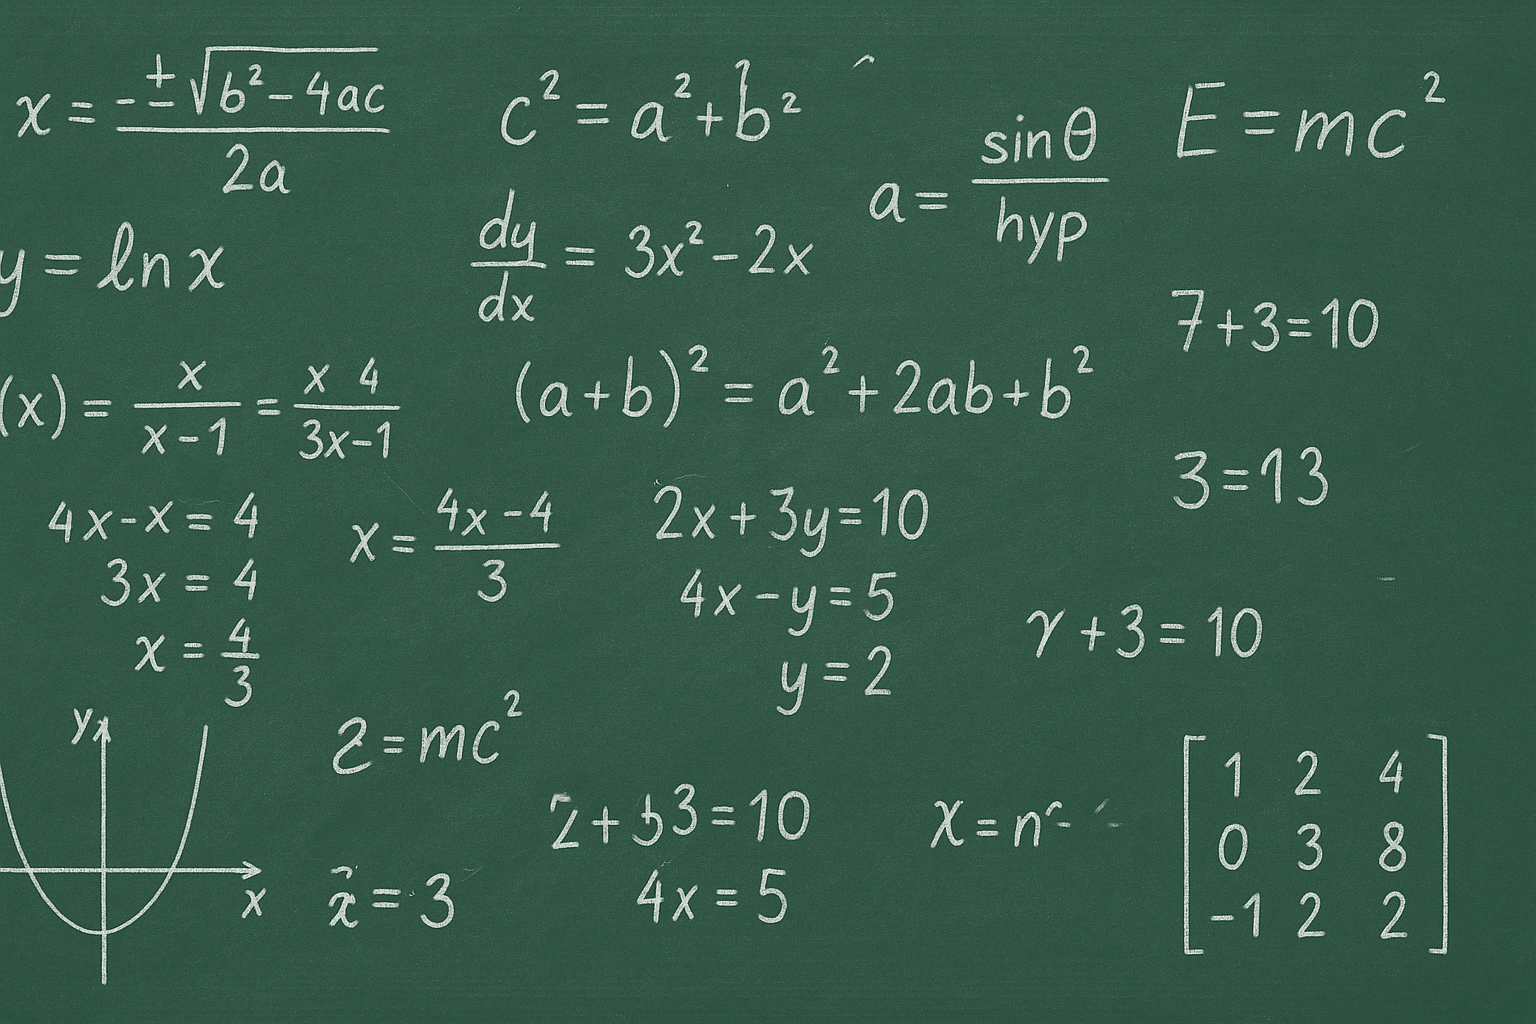 x = -± √b² - 4ac / 2a
c² = a² + b²
a = sinθ / hyp
E = mc²
y = ln x
dy/dx = 3x² - 2x
7 + 3 = 10
(x) = x / x - 1 = x 4 / 3x - 1
(a + b)² = a² + 2ab + b²
3 = 13
4x - x = 4
3x = 4
x = 4/3
x = 4x - 4 / 3
2x + 3y = 10
4x - y = 5
y = 2
γ + 3 = 10
y
x
2 = mc²
x = 3
3 = 10
4x = 5
x = n
1 2 4
0 3 8
-1 2 2